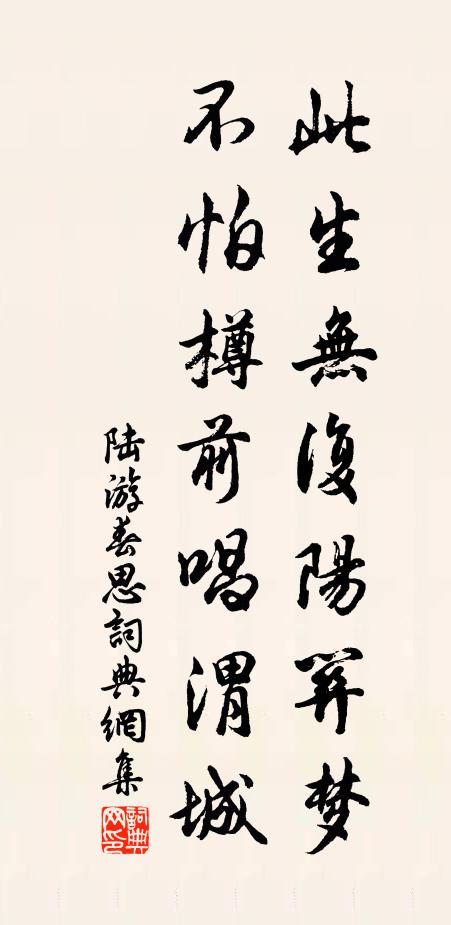 此生無復陽關梦
不怕樽前唱渭城
陆游春思詞典網集
詞典网印